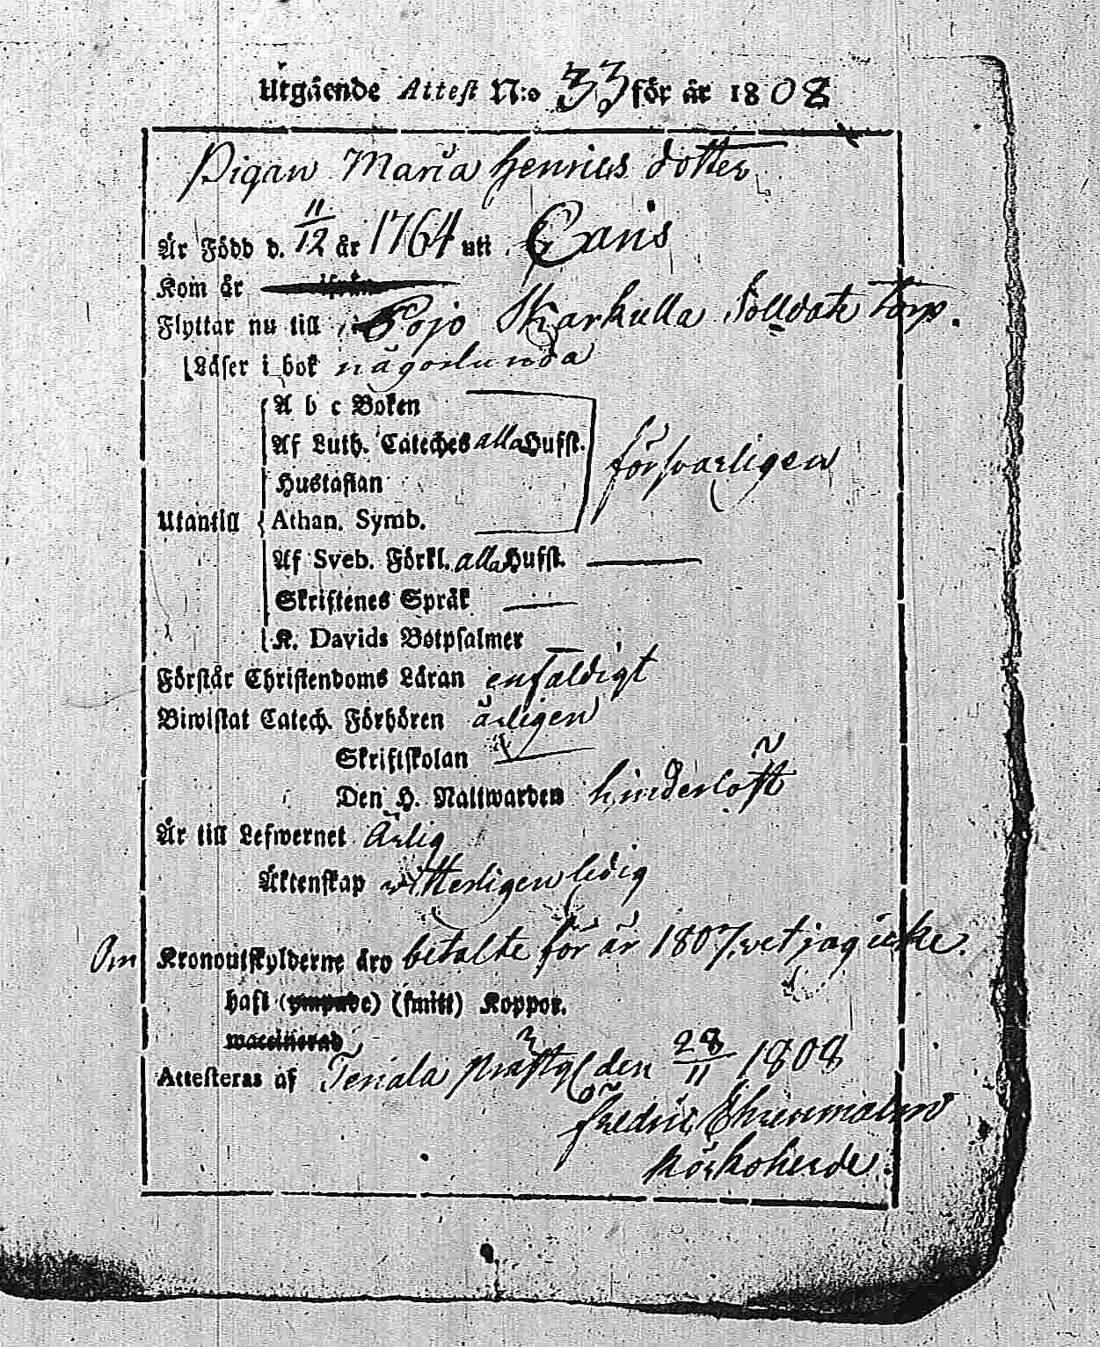 Utgående Attest N:o 33 för år 1808
Pigan Maria Henrics dotter
Är Född d. 11/12 år 1764 uti Caris
Kom år
Flyttar nu till Pojo Skarkulla Solldate Torp.
Läser i bok någorlunda
A b c Boken
Af Luth. Cateches alla Hufst.
Hustaflan
försvarligen
Utantill Athan. Symb.
Af Sveb. Förkl. alla Hufst. —
Skriftenes Språk —
K. Davids Botpsalmer
Förstår Christendoms Läran enfaldigt
Biwistat Catech. Förhören ärligen
Skriftskolan —
Den H. Nattwarden hinderlöst
Är till Lefwernet Ärlig
Äktenskap witterligen ledig
Om Kronoutskylderne äro betalte för år 1807, vet jag icke.
haft (ympade) (smitt) Koppor.
waccinerad
Attesteras af Tenala prästg. den 28/11 1808
Fredric Ehrenmalm
Körkoherde.